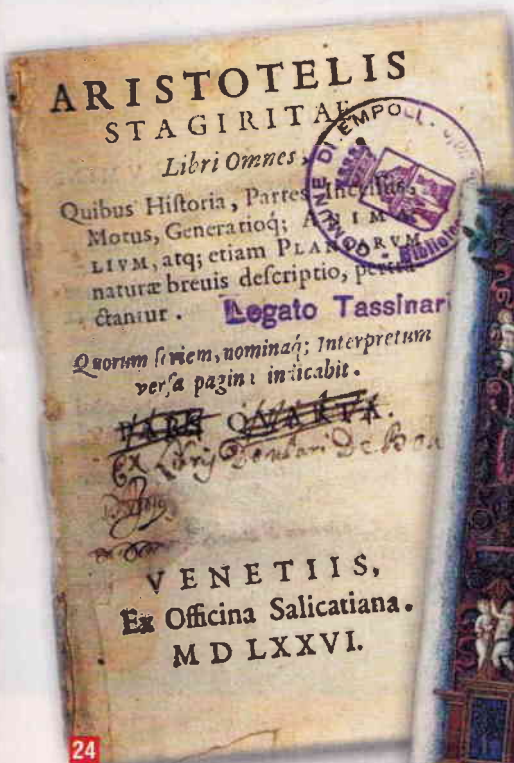 ARISTOTELIS
STAGIRITAE
Libri Omnes,
Quibus Hiſtoria, Partes Inceſſus,
Motus, Generatioq; ANIMA
LIVM, atq; etiam PLANTARVM
naturæ breuis deſcriptio, pertra
ctantur.
Legato Tassinari
Quorum ſeriem, nominaq; Interpretum
verſa pagina indicabit.
PARS QVARTA.
Ex Libris
VENETIIS,
Ex Officina Salicatiana.
MDLXXVI.
COMUNE DI EMPOLI
Bibliote
24